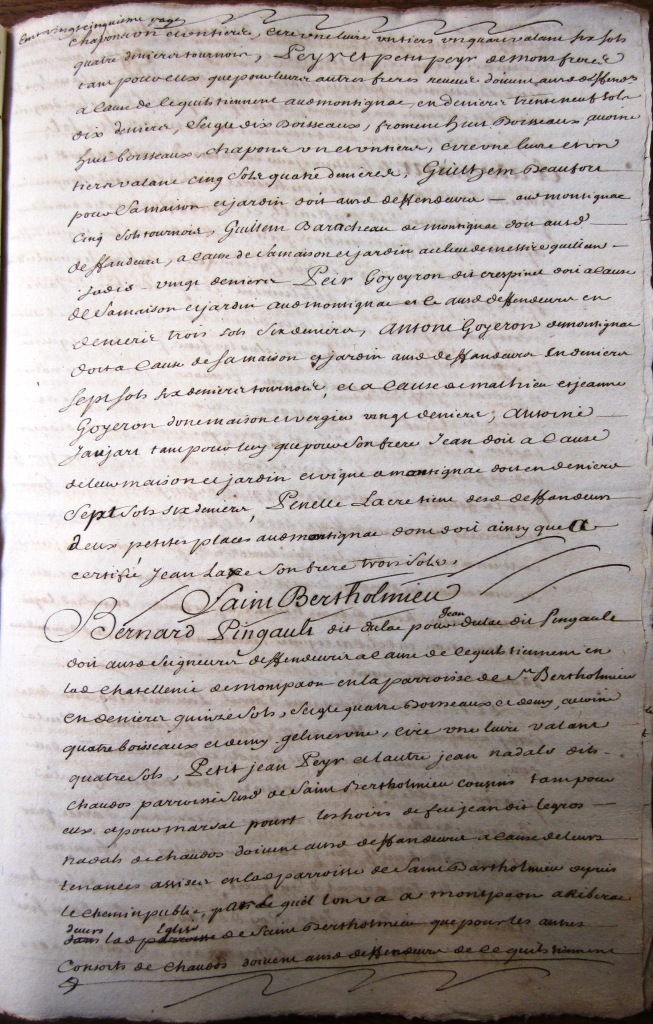 Cent vingt cinquieme page
chapons un et un tiers, cire une livre un tiers un quart valant six sols
quatre deniers tournois, Peyr et petit peyr demons freres
tant pour eux que pour leurs autres freres doivent aud deffendeur
a cause de ce quils tiennent aud montignac, en deniers trente neuf sols
dix deniers, seigle dix Boisseaux, froment huit Boisseaux, avoine
huit boisseaux, chapons un et un tiers, cire une livre et un
tiers valant cinq sols quatre deniers, Guilhem Beaufort
pour sa maison et jardin doit aud deffendeur aud montignac
cinq sols tournois, Guillem Baracheau de montignac doit aud
deffendeur, a cause de sa maison et jardin
jadis vingt deniers Peir Goyeyron dit crespin doit a cause
de sa maison et jardin aud montignac et le aud deffendeur en
deniers trois sols six deniers, Antoni Goyeron de montignac
doit a cause de sa maison et jardin aud deffendeur en deniers
sept sols six deniers tournois, et a cause de mathieu et jeanne
Goyeron d'une maison et vergier vingt deniers, Antoine
Jaujart tant pour luy que pour son frere Jean doit a cause
de leur maison et jardin et vigne a montignac doit en deniers
sept sols six deniers, Penelle Lacretiene dud deffendeur
deux petites places aud montignac dont doit ainsy que a
certifié Jean son frere trois sols.
Saint Bertholmieu
Bernard Pingault dit dulac pour Jean dulac dit Pingault
doit aud Seigneur deffendeur a cause de ce quils tiennent en
lad chatellenie de montpaon en la parroisse de St Bertholmieu
en deniers quinze sols, seigle quatre boisseaux et demy, avoine
quatre boisseaux et demy, geline une, cire une livre valant
quatre sols, Petit jean Peyr et l'autre jean nadals dits
chaudos parroisse susd de Saint Bertholmieu cousins tant pour
eux et pour marsal pour les hoirs de feu jean dit legros
nadals de chaudos doivent aud deffendeur a cause de leurs
tenances assises en lad parroisse de Saint Bartholmieu depuis
le chemin public, par le quel l'on va a montpaon a Riberac
devers lad Eglise de Saint Bertholmieu que pour les autres
Consorts de Chaudos doivent aud deffendeur de ce quils tiennent